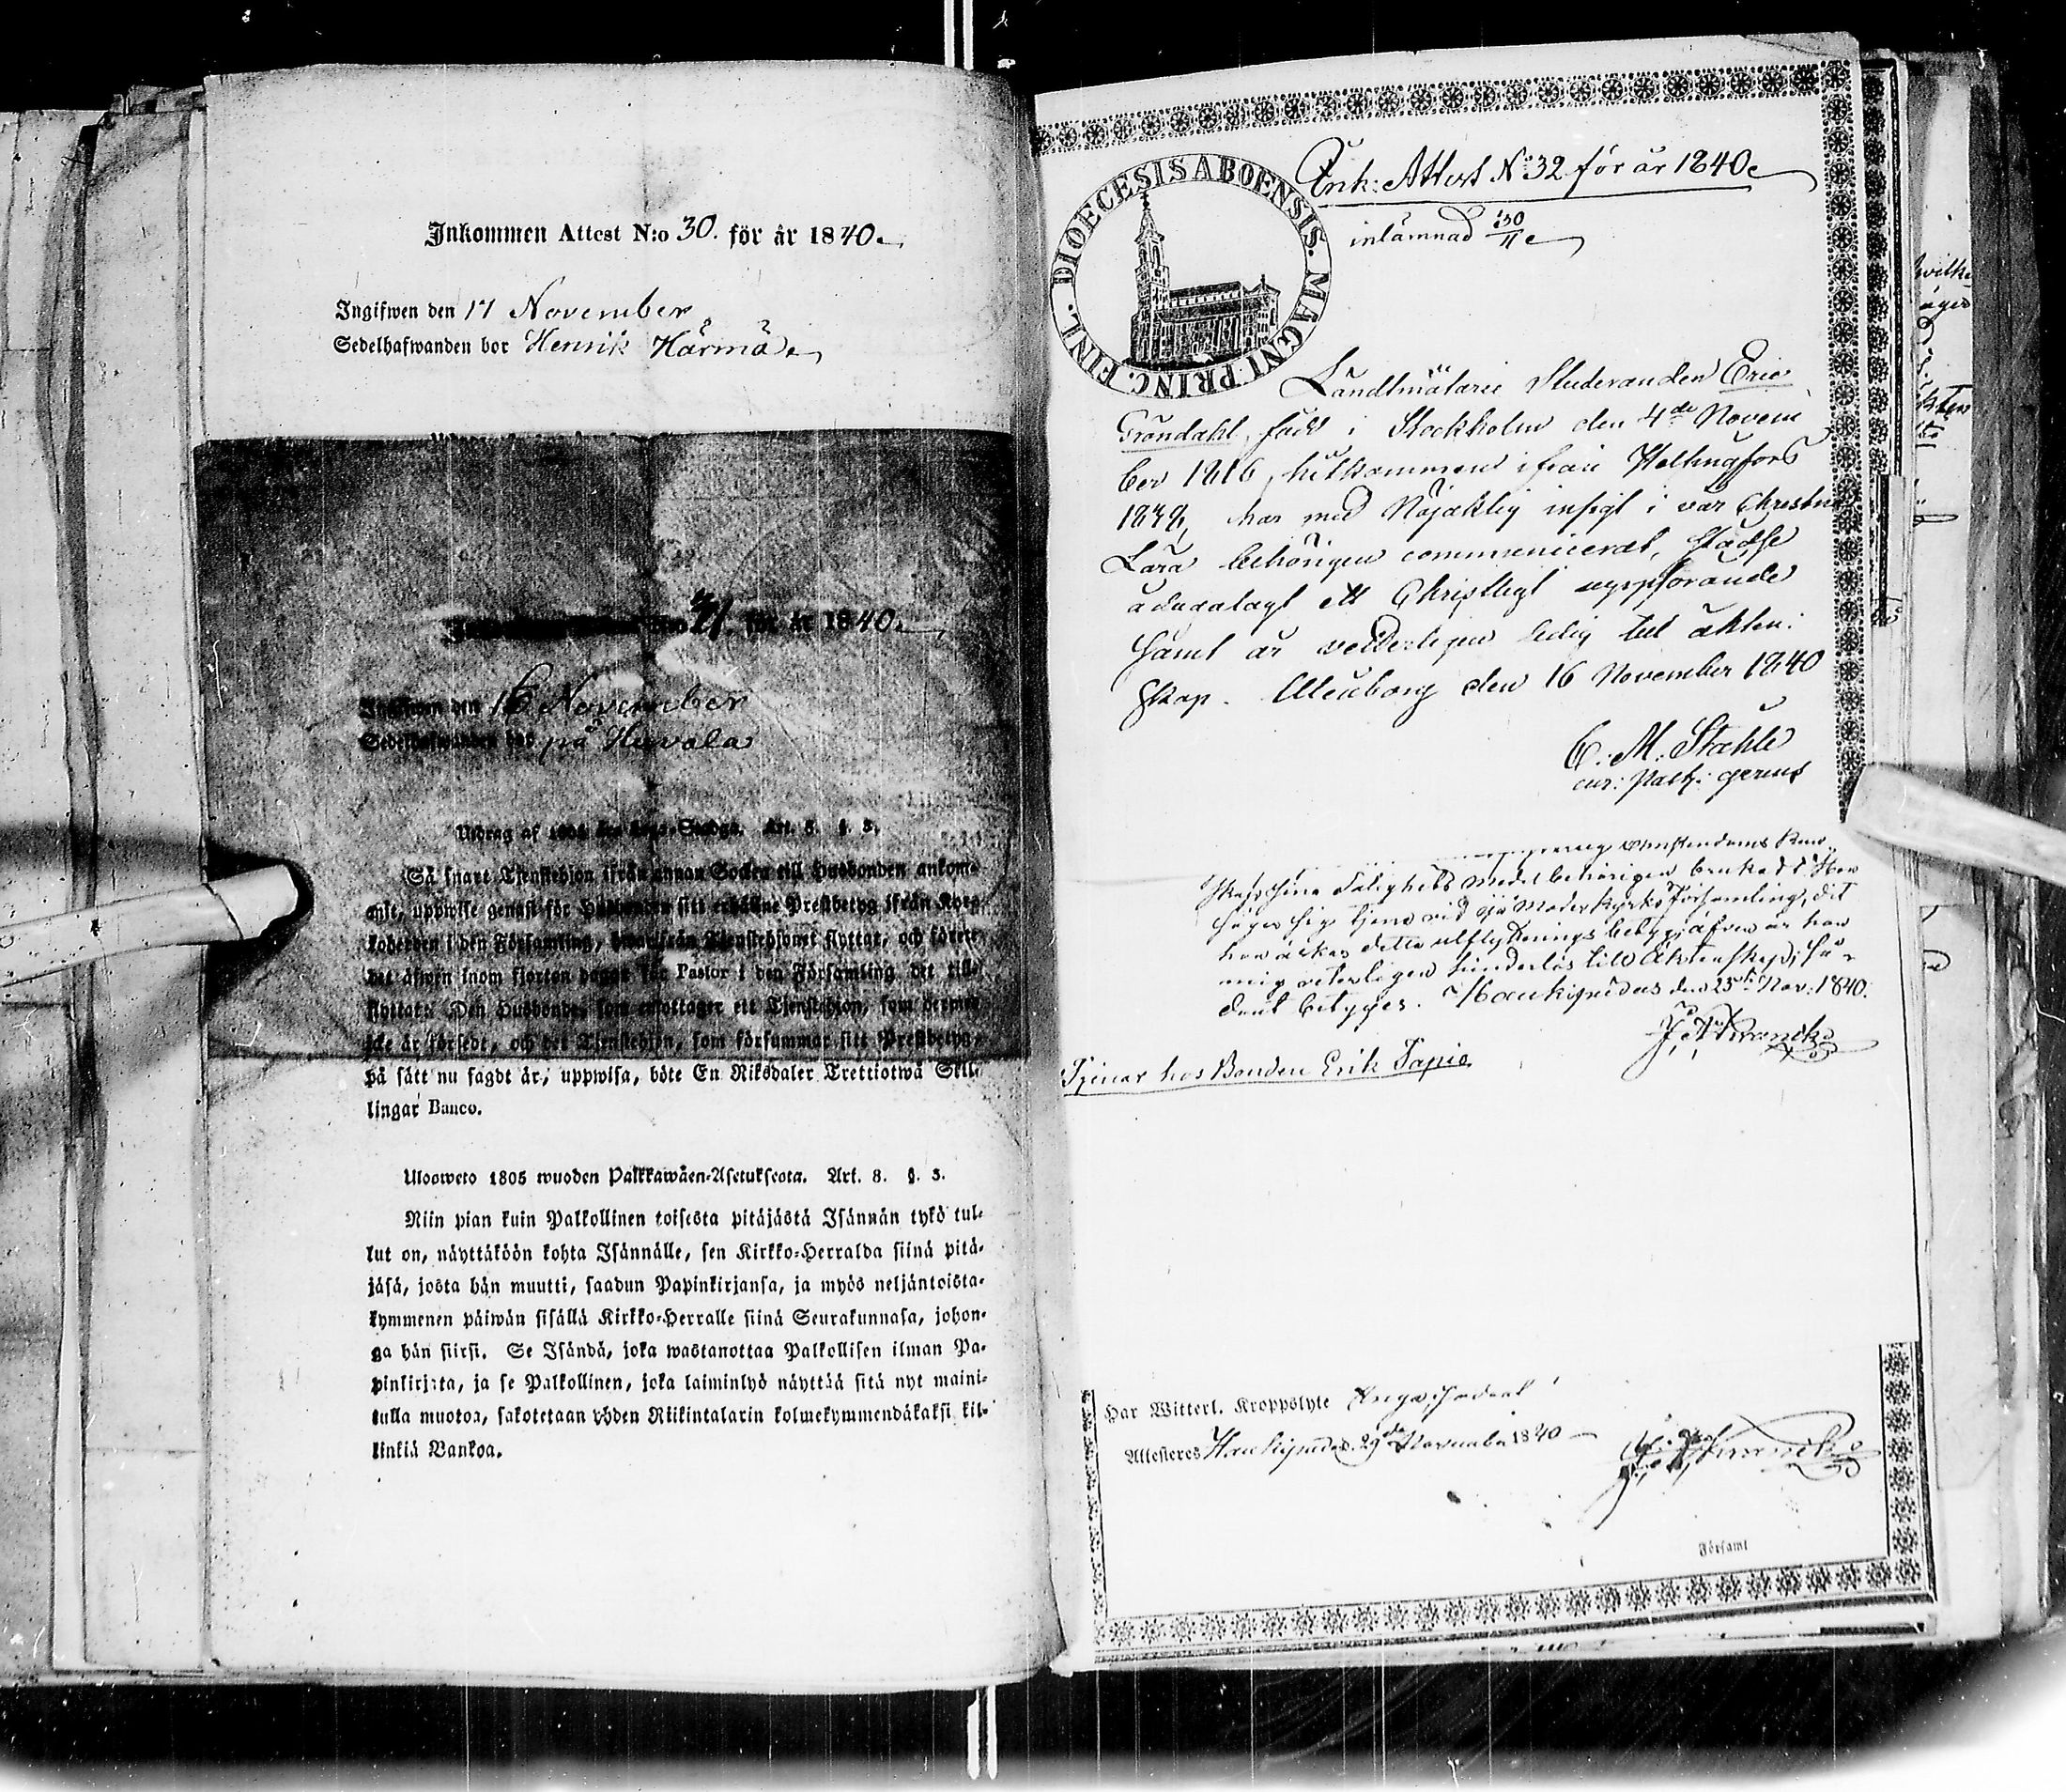 Inkommen Attest N:o 30. för år 1840.
Ingifwen den 17 November
Sedelhafwanden bor Henrik Härmä
31. för år 1840.
Ingifwen den 16 November
Sedelhafwanden bor på Huvala
Utdrag af 1805 års Lego-Stadga. Art. 8. §. 3.
Så snart Tjenstehjon ifrån annan Socken till Husbonden ankom-
mit, uppwise genast för Husbonden sitt erhållne Prestbetyg ifrån Kyr-
koherden i den Församling, hwarifrån Tjenstehjonet flyttat, och förete
det äfwen inom fjorton dagar för Pastor i den Församling det till-
flyttat: Den Husbonde, som emottager ett Tjenstehjon, som dermed
icke är försedt, och det Tjenstehjon, som försummar sitt Prestbetyg,
på sätt nu sagdt är, uppwisa, böte En Riksdaler Trettiotwå Skil-
lingar Banco.
Ulosweto 1805 wuoden Palkkawäen-Asetuksesta. Art. 8. §. 3.
Niin pian kuin Palkollinen toisesta pitäjästä Isännän tykö tul-
lut on, näyttäköön kohta Isännälle, sen Kirkko-Herralda siinä pitä-
jäsä, josta hän muutti, saadun Papinkirjansa, ja myös neljäntoista-
kymmenen päiwän sisällä Kirkko-Herralle siinä Seurakunnasa, johon-
ga hän siirsi. Se Isändä, joka wastanottaa Palkollisen ilman Pa-
pinkirjata, ja se Palkollinen, joka laiminlyö näyttää sitä nyt maini-
tulla muotoa, sakotetaan yhden Riikintalarin kolmekymmendäkaksi kil-
linkiä Bankoa.
DIOECESIS ABOENSIS. MAGNI PRINC. FINL.
Ank: Attest No 32 för år 1840
inlämnad 30/11
Landtmäterie Studeranden Eric
Gröndahl, född i Stockholm den 4de Novem
ber 1816, hitkommen ifrån Helsingfors
har med Nöjaktig insigt i vår Christna
Lära behörigen communicerat, städse
ådagalagt ett Christligt uppförande
samt är veterligen ledig till äkten-
skap. Uleåborg den 16 November 1840
C. M. Stahle
cur: Past: gerens
Kun-
skap, sina Salighets medel behörigen brukadt. Hon
säger sig tjena vid Moder kyrko församling, dit
hon äskar detta utflyttnings betyg, äfven är hon
mig veterligen hinderlös till Äktenskap; så-
dant betyges. Haukipudas den 25te Nov: 1840.
Tjenar hos Bonden Erik Tapio
Har Witterl. Kroppslyte Inga,
Attesteres Haukipudas 29de November 1840
Församl